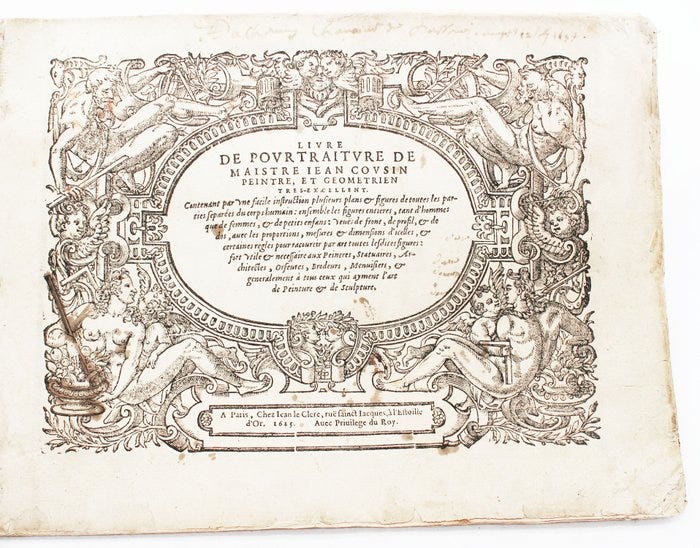 LIVRE
DE POVRTRAITVRE DE
MAISTRE IEAN COVSIN
PEINTRE, ET GEOMETRIEN
TRES-EXCELLENT.
Contenant par vne facile instruction plusieurs plans & figures de toutes les par-
ties separées du corps humain: ensemble les figures entieres, tant d'hommes
que de femmes, & de petits enfans: veuës de front, de profil, & de
dos, auec les proportions, mesures & dimensions d'icelles, &
certaines regles pour racourcir par art toutes lesdites figures:
fort vtile & necessaire aux Peintres, Statuaires, Ar-
chitectes, Orfeures, Brodeurs, Menuisiers, &
generalement à tous ceux qui ayment l'art
de Peinture & de Sculpture.
A Paris, Chez Iean le Clerc, ruë sainct Iacques, à l'Estoille
d'Or. 1625. Auec Priuilege du Roy.